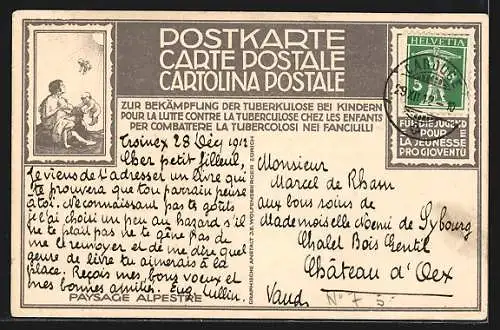 POSTKARTE
CARTE POSTALE
CARTOLINA POSTALE
HELVETIA
5
FÜR DIE JUGEND
POUR
LA JEUNESSE
PRO GIOVENTÙ
ZUR BEKÄMPFUNG DER TUBERKULOSE BEI KINDERN
POUR LA LUTTE CONTRE LA TUBERCULOSE CHEZ LES ENFANTS
PER COMBATTERE LA TUBERCOLOSI NEI FANCIULLI
Troinex 28 Déc 1912
Cher petit filleul,
Je viens de t'adresser un livre qui
te prouvera que ton parrain pense
à toi. Ne connaissant pas tes goûts
je l'ai choisi un peu au hazard s'il
ne te plait pas ne te gêne pas de
me le renvoyer et de me dire quel
genre de livre tu aimerais à la
place. Reçois mes bons voeux et
mes bonnes amitiés. Eug.
PAYSAGE ALPESTRE
Monsieur
Marcel de Rham
aux bons soins de
Mademoiselle Noemi de Sybourg
Chalet Bois Gentil
Château d'Oex
Vaud